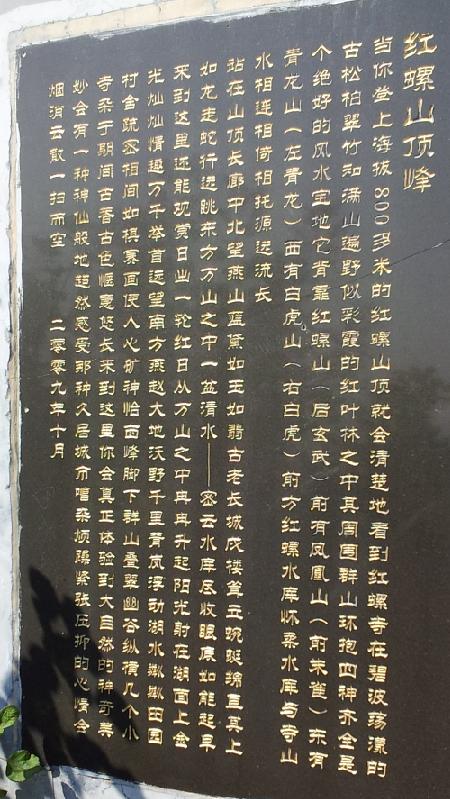 红螺山顶峰
当你登上海拔800多米的红螺山顶就会清楚地看到红螺寺在碧波荡漾的
古松柏翠竹和满山遍野似彩霞的红叶林之中其周围群山环抱四神齐全是
个绝好的风水宝地它背靠红螺山（后玄武）前有凤凰山（前朱雀）东有
青龙山（左青龙）西有白虎山（右白虎）前方红螺水库怀柔水库与寺山
水相连相倚相托源远流长
站在山顶长廊中北望燕山蓝黛如玉如翡古老长城戍楼耸立蜿蜒绵亘其上
如龙走蛇行远眺东方万山之中一盆清水——密云水库尽收眼底如能起早
来到这里还能观赏日出一轮红日从万山之中冉冉升起阳光射在湖面上金
光灿灿情趣万千举首远望南方燕赵大地沃野千里青岚浮动湖水粼粼田园
村舍疏密相间如棋裹画使人心旷神怡西峰脚下群山叠翠幽谷纵横几个小
寺杂于期间古香古色惬意悠长来到这里你会真正体验到大自然的神奇美
妙会有一种神仙般地超然感受那种久居城市嘈杂烦躁紧张压抑的心情会
烟消云散一扫而空
二零零九年十月